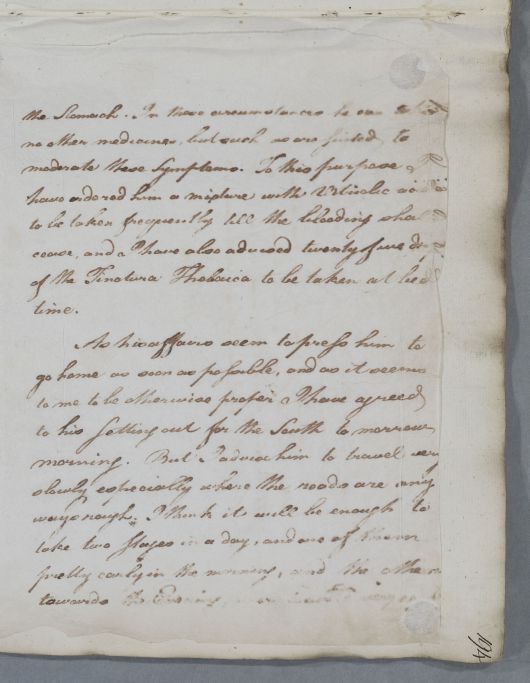 the Stomach. In these circumstances he can
no other medicines, but such as are suited to
moderate these Symptoms. To this purpose
have ordered him a mixture with Vitriolic
to be taken frequently till the bleeding shal
cease, and I have also advised twenty five
of the Tinctura Thebaica to be taken at bed
time.
As his affairs seem to press him to
go home as soon as possible, and as it seems
to me to be otherwise proper I have agreed
to his setting out for the South to morrow
morning. But I advise him to travel very
slowly, especially where the roads are any
ways rough. I think it will be enough to
take two stages in a day, and one of them
pretty early in the morning, and the other
towards the Evening,